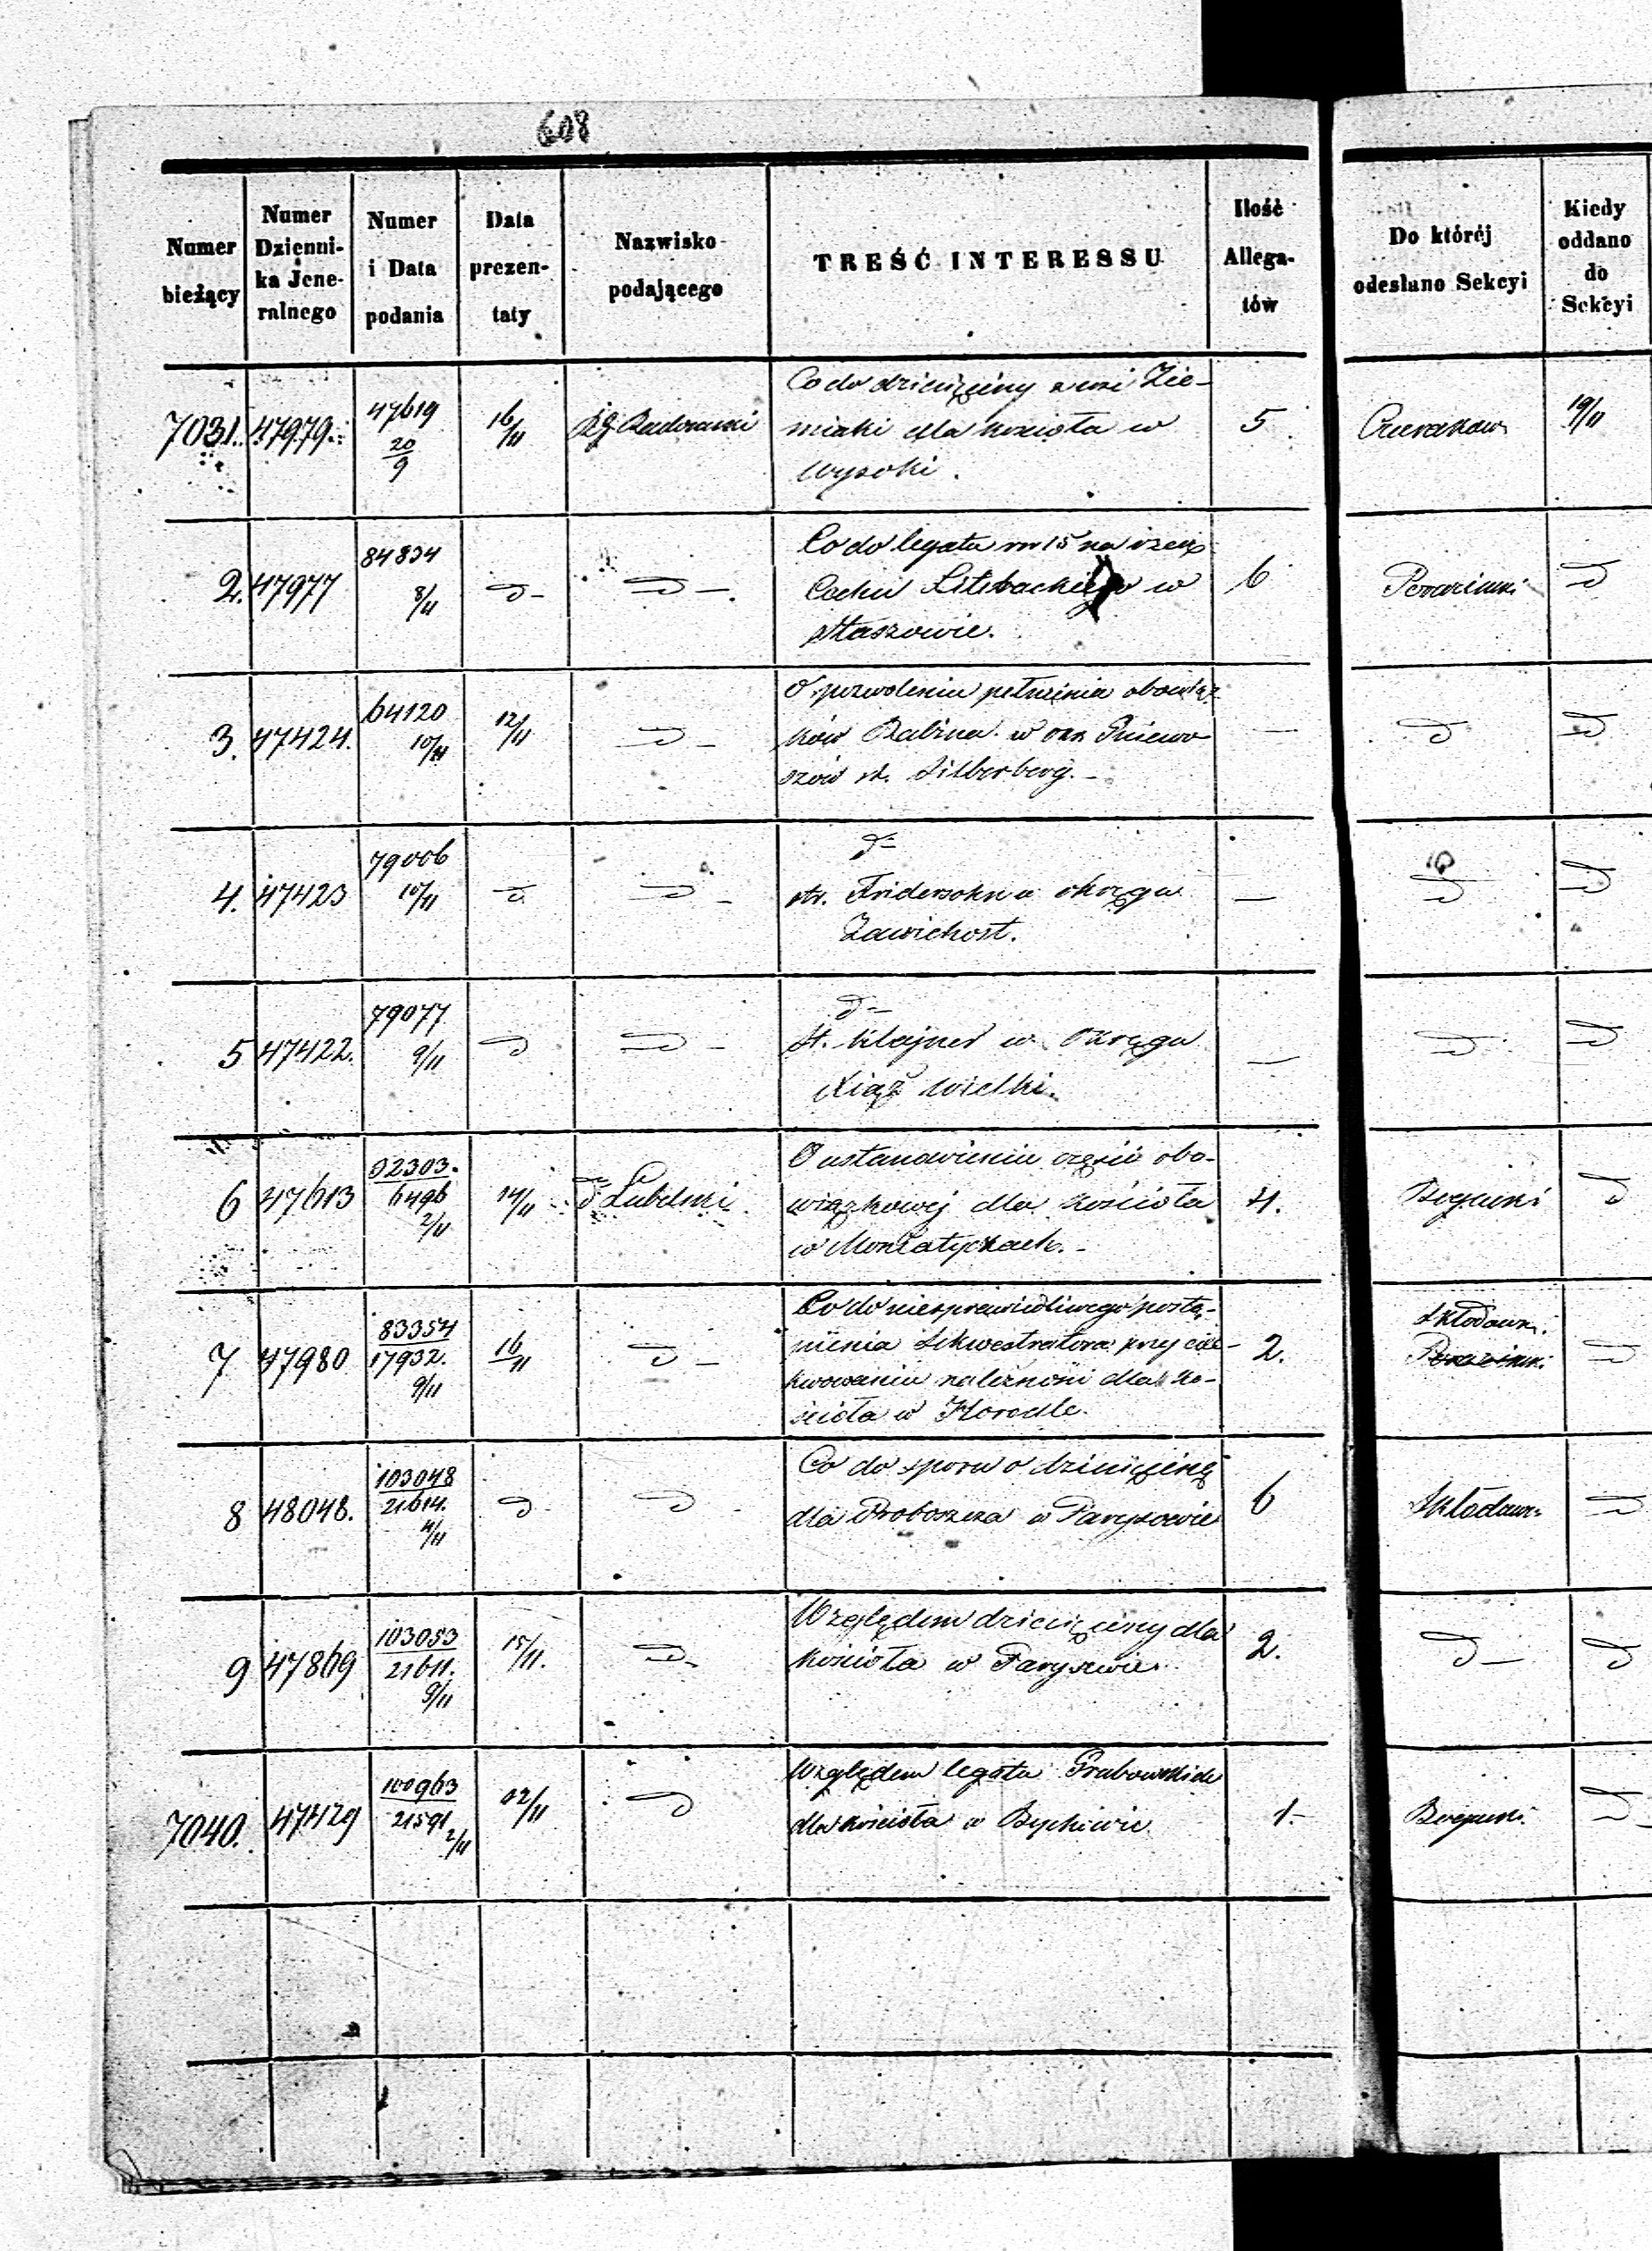 608
Numer bieżący
Numer Dzienni-ka Jene-ralnego
Numer i Data podania
Data prezen-taty
Nazwisko podającego
TREŚĆ INTERESSU
Ilość Allega-tów
Do któréj odesłano Sekcyi
Kiedy oddano do Sekcyi
7031. 47979. 47619 20/9 16/11 R.G. Radomski
Co do dziesięciny z wsi Zie-
miaki dla kościoła w
Wysoki.
5 19/11
2. 47977 84834 8/11 d- d-
Co do legatu rsr 15 na rzecz
Cechu w
Staszowie.
6 d
3. 47424. 64120 10/11 12/11 d-
O pozwolenie pełnienia obowiąz-
ków Rabina w okr. Gniewo-
szów st. Silberberg.-
— d d
4. 47423 79006 10/11 d d-
d-
st. Fridersohn w okręgu
Zawichost.
— d d
5 47422. 79077 9/11 d d-
d-
st. Klajner w Okręgu
Xiąż Wielki.
— d d
6 47613 92303. 6496 2/11 14/11 d Lubelski
O ustanowieniu części obo-
wiązkowej dla kościoła
w Moniatyczach.-
4. d
7 47980 83354 17932. 9/11 16/11 d-
Co do niesprawiedliwego postą-
pienia Sekwestratora przy eze-
kwowaniu należności dla ko-
ścioła w Horodle.
2. Skłodows. d
8 48048. 103048 21614. 4/11 d d-
Co do sporu o dziesięcinę
dla Proboszcza w Parysowie
6 Skłodows. d
9 47869 103053 21611. 9/11 15/11. d-
Względem dziesięciny dla
kościoła w Parysowie.
2. d- d
7040. 47429 100963 21591 2/11 12/11 d
Względem legatu Grabowskich
dla kościoła w Bychawie
1.- d-